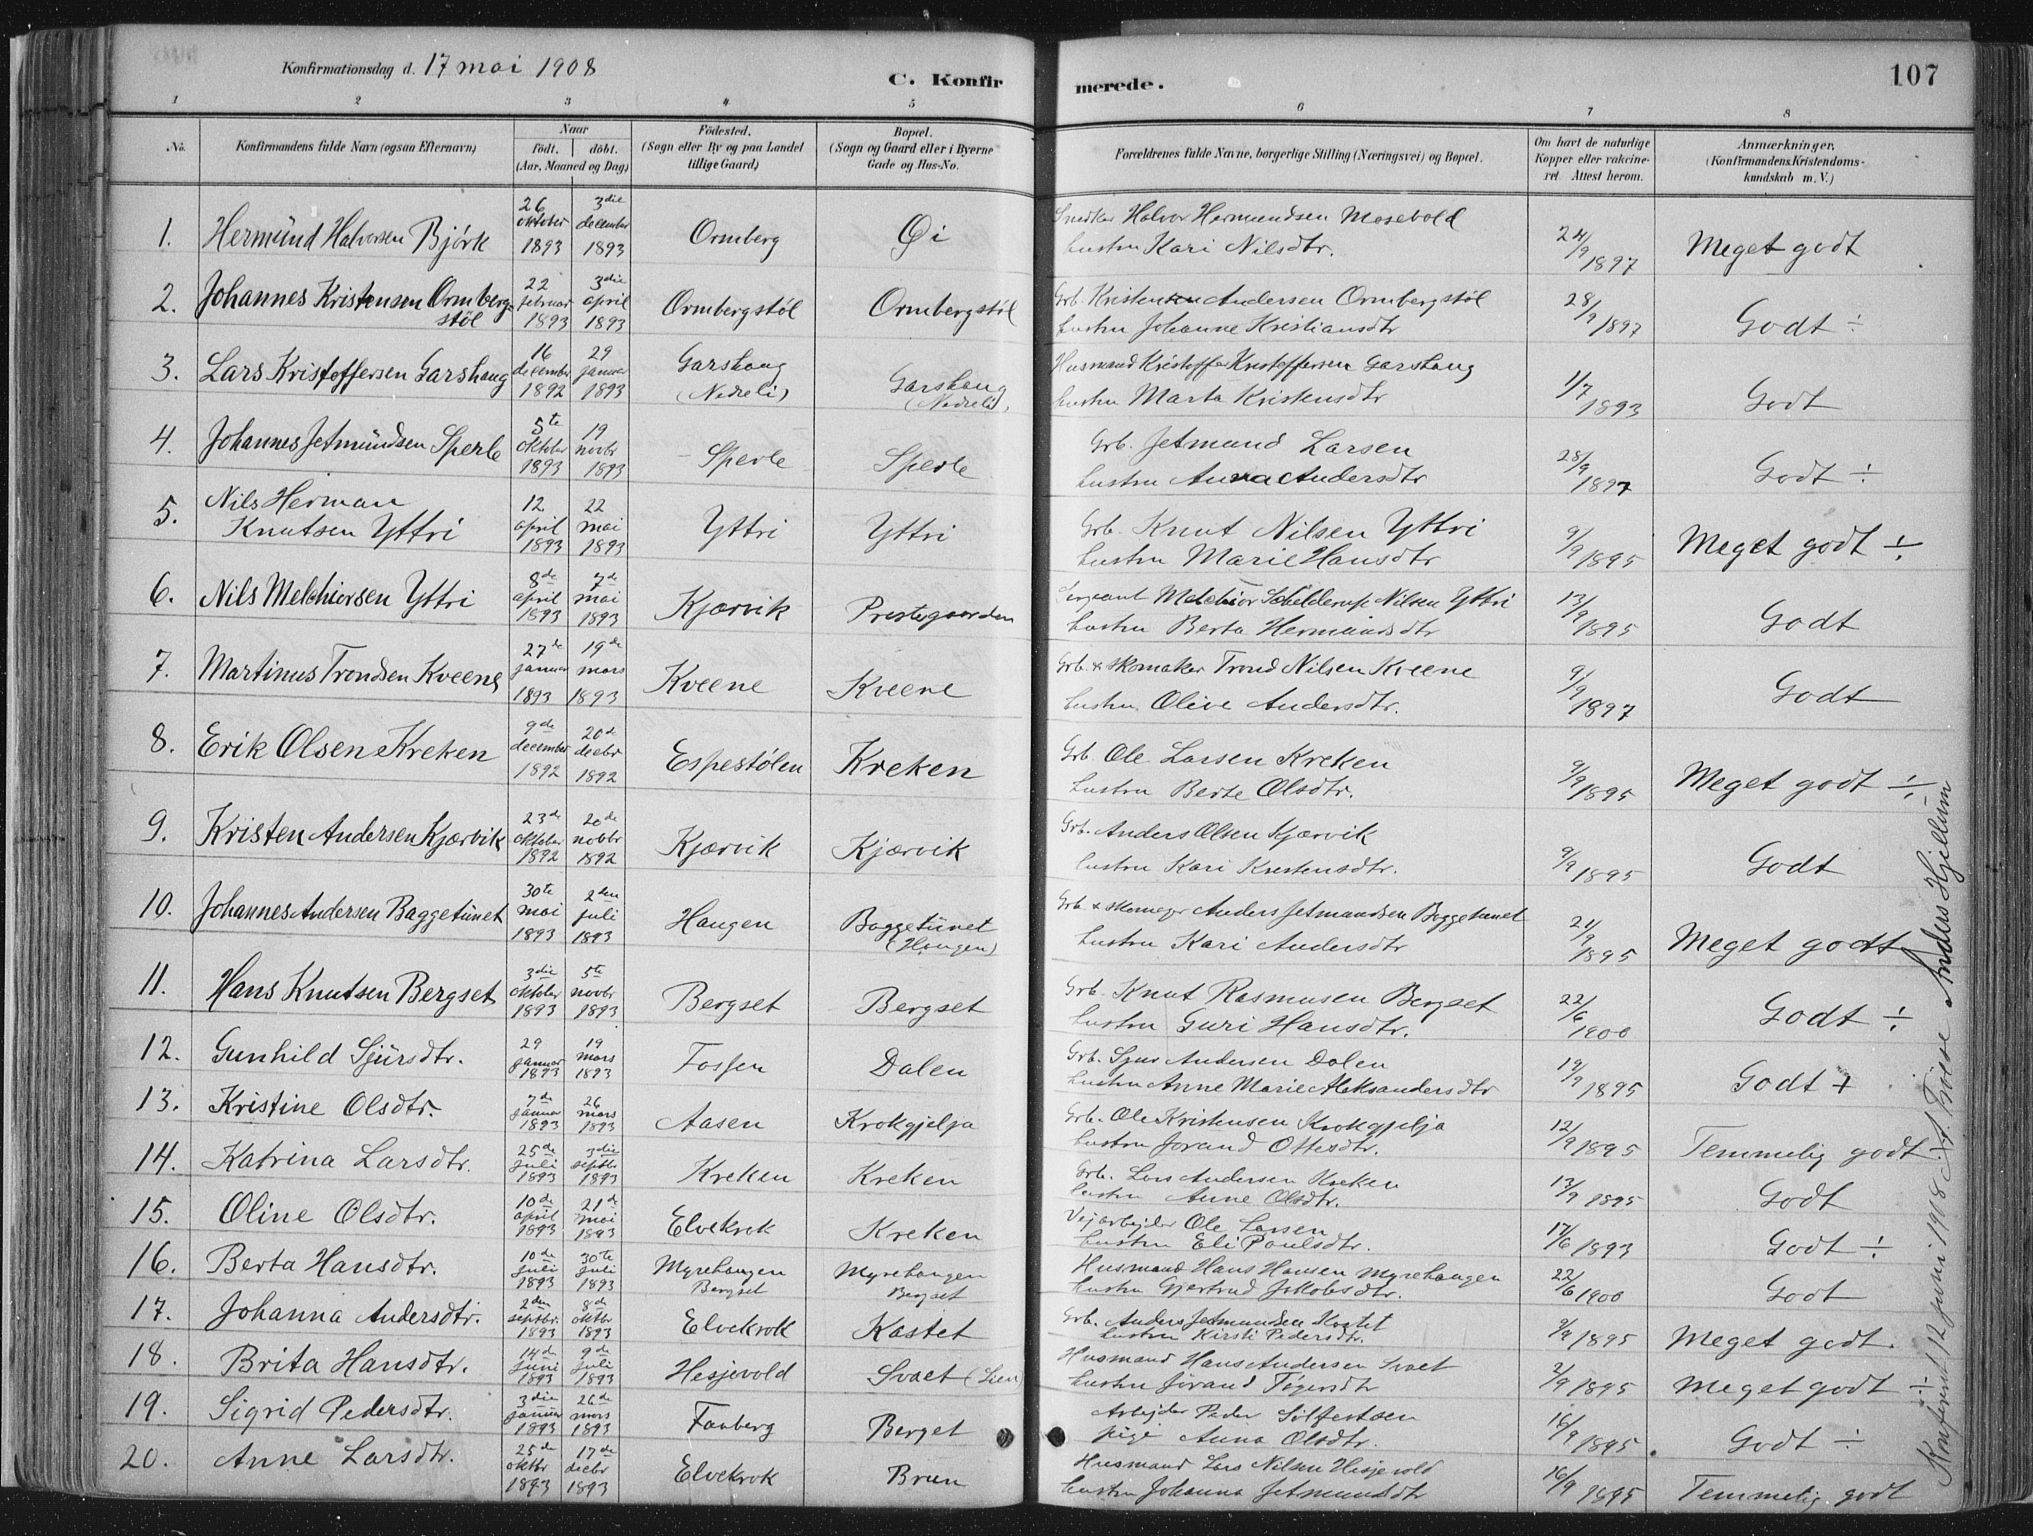 Konfirmationsdag d. 17 mai 1908
C. Konfirmerede.
107
1 2 3 4 5 6 7 8
No. Konfirmandens fulde Navn (ogsaa Efternavn) Naar födt. döbt. (Aar, Maaned og Dag) Födested. (Sogn eller By og paa Landet tillige Gaard) Bopæl. (Sogn og Gaard eller i Byerne Gade og Hus-No. Forældrenes fulde Navne, borgerlige Stilling (Næringsvei) og Bopæl. Om havt de naturlige Kopper eller vakcineret. Attest herom. Anmærkninger. (Konfirmandens Kristendomskundskab m. V.)
1. Hermund Halvorsen Bjørk 26 oktober 1893 3die december 1893 Ormberg Øi Snedker Halvor Hermundsen Mosebold
hustru Kari Nilsdtr. 24/9 1897 Meget godt
2. Johannes Kristensen Ormbergstöl 22 februar 1893 3die april 1893 Ormbergstöl Ormbergstöl Grb. Kristen Andersen Ormbergstöl
hustru Johanne Kristiansdtr 28/9 1897 Godt ÷
3. Lars Kristoffersen Garshaug 16 december 1892 29 januar 1893 Garshaug (Nedreli) Garshaug (Nedreli) Husmand Kristoffer Kristoffersen Garshaug
hustru Marta Kristensdtr 1/7 1893 Godt
4. Johannes Jetmundsen Sperle 5te oktober 1893 19 novbr 1893 Sperle Sperle Grb. Jetmund Larsen
hustru Anna Andersdtr 28/9 1897 Godt ÷
5. Nils Herman Knutsen Yttri 12 april 1893 22 mai 1893 Yttri Yttri Grb. Knut Nilsen Yttri
hustru Marie Hansdtr 9/9 1895 Meget godt ÷
6. Nils Melchiorsen Yttri 8de april 1893 7de mai 1893 Kjærvik Prestegaarden Sergeant Melchior Schelderup Nilsen Yttri
hustru Berta Hermundsdtr 13/9 1895 Godt
7. Martinus Trondsen Kveene 27de januar 1893 19de mars 1893 Kveene Kveene Grb. & skomaker Trond Nilsen Kveene
hustru Olive Andersdtr. 9/9 1897 Godt
8. Erik Olsen Kreken 9de december 1892 20de decbr 1892 Espestølen Kreken Grb. Ole Larsen Kreken
hustru Berte Olsdtr. 9/9 1895 Meget godt ÷
9. Kristen Andersen Kjærvik 23de oktober 1892 20de novbr 1892 Kjærvik Kjærvik Grb. Anders Olsen Kjærvik
hustru Kari Kristensdtr. 9/9 1895 Godt
10. Johannes Andersen Baggetunet 30te mai 1893 2den juli 1893 Haugen Baggetunet (Haugen) Grb. & skomager Anders Jetmundsen Baggetunet
hustru Kari Andersdtr 21/9 1895 Meget godt
11. Hans Knutsen Bergset 3die oktober 1893 5te novbr 1893 Bergset Bergset Grb. Knut Rasmusen Bergset
hustru Guri Hansdtr. 22/6 1900 Godt ÷
12. Gunhild Sjursdtr. 29 januar 1893 19 mars 1893 Fossen Dalen Grb. Sjur Andersen Dalen
hustru Anne Marie Aleksandersdtr 19/9 1895 Godt +
13. Kristine Olsdtr. 7de januar 1893 26 mars 1893 Aasen Krokgjelja Grb. Ole Kristensen Krokgjelja
hustru Jorand Ottesdtr. 12/9 1895 Temmelig godt
14. Katrina Larsdtr. 25de juli 1893 3die septbr 1893 Kreken Kreken Grb. Lars Andersen Kreken
hustru Anne Olsdtr. 13/9 1895 Godt
15. Oline Olsdtr. 10de april 1893 21de mai 1893 Elvekrok Kreken Vejarbejder Ole Larsen
hustru Eli Paulsdtr. 17/6 1893 Godt ÷
16. Berta Hansdtr. 10de juli 1893 30te juli 1893 Myrehaugen Bergset Myrehaugen Bergset Husmand Hans Hansen Myrehaugen
hustru Gjertrud Jakobsdtr. 22/6 1900 Godt
17. Johanna Andersdtr. 2den septbr. 1893 8de oktbr 1893 Elvekrok Kastet Grb. Anders Jetmundsen Kastet
hustru Kirsti Pedersdtr. 9/9 1895 Meget godt.
18. Brita Hansdtr. 14de juni 1893 9de juli 1893 Hesjevold Svaet (Lien) Husmand Hans Andersen Svaet
hustru Jørand Tøgersdtr 2/9 1895 Meget godt ÷
19. Sigrid Pedersdtr. 3die januar 1893 26de mars 1893 Faaberg Berget Arbejder Peder Sølfestsen
pige Anna Olsdtr. 16/9 1895 Godt ÷
20. Anne Larsdtr. 25de oktbr 1893 17de decbr 1893 Elvekrok Brun Husmand Lars Nilsen Hesjevold
hustru Johanna Jetmundsdtr 16/9 1895 Temmelig godt
Konfereret 12 juni 1908 Anders Hjellum